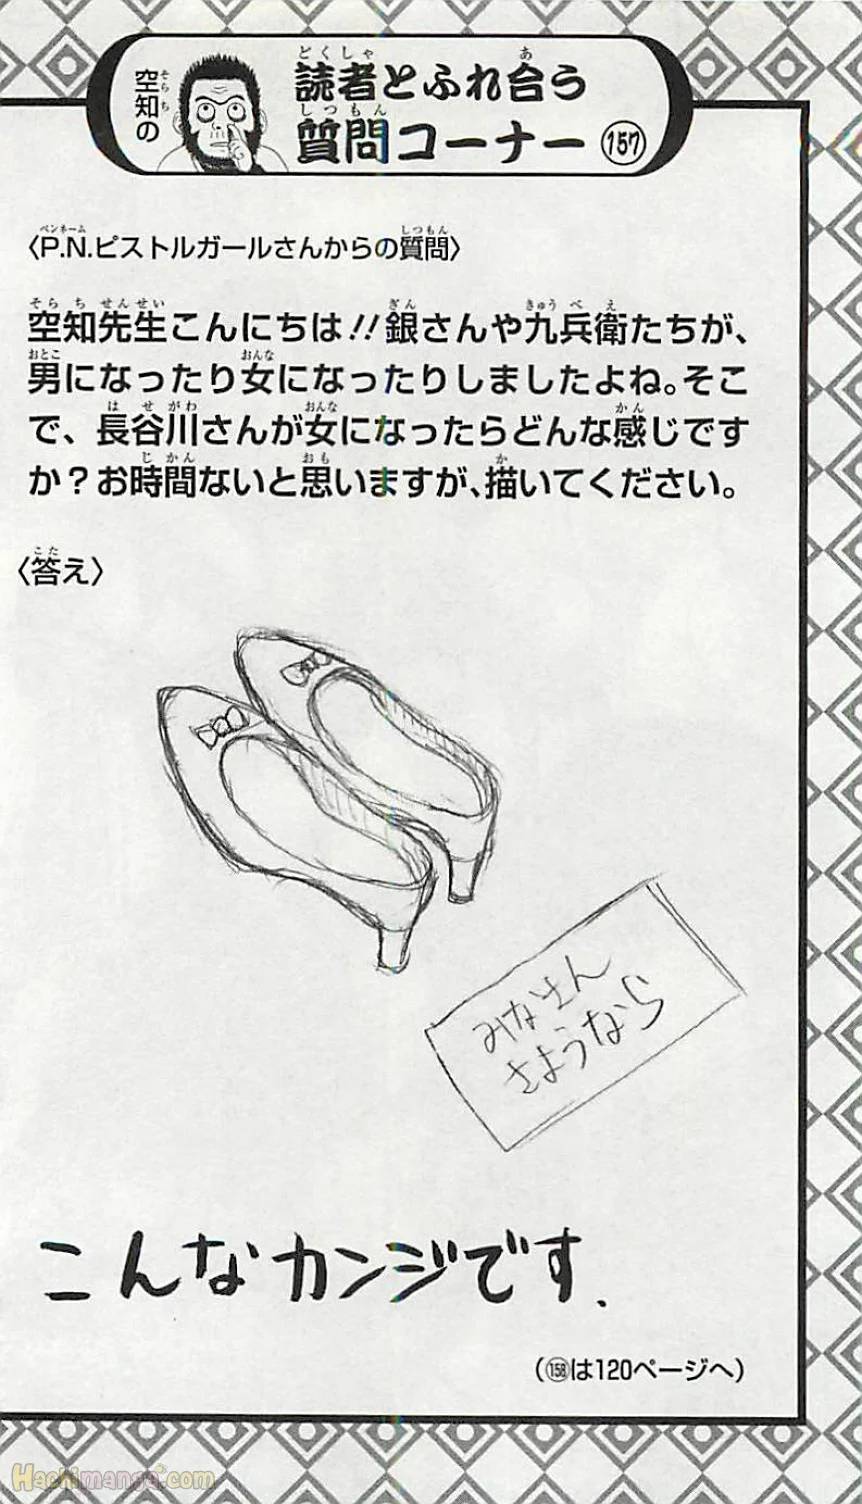 空知の
読者とふれ合う
質問コーナー157
〈P.N.ピストルガールさんからの質問〉
空知先生こんにちは!!銀さんや九兵衛たちが、
男になったり女になったりしましたよね。そこ
で、長谷川さんが女になったらどんな感じです
か?お時間ないと思いますが、描いてください。
〈答え〉
みなさん
さようなら
こんなカンジです.
(158は120ページへ)
Hachimanga.com